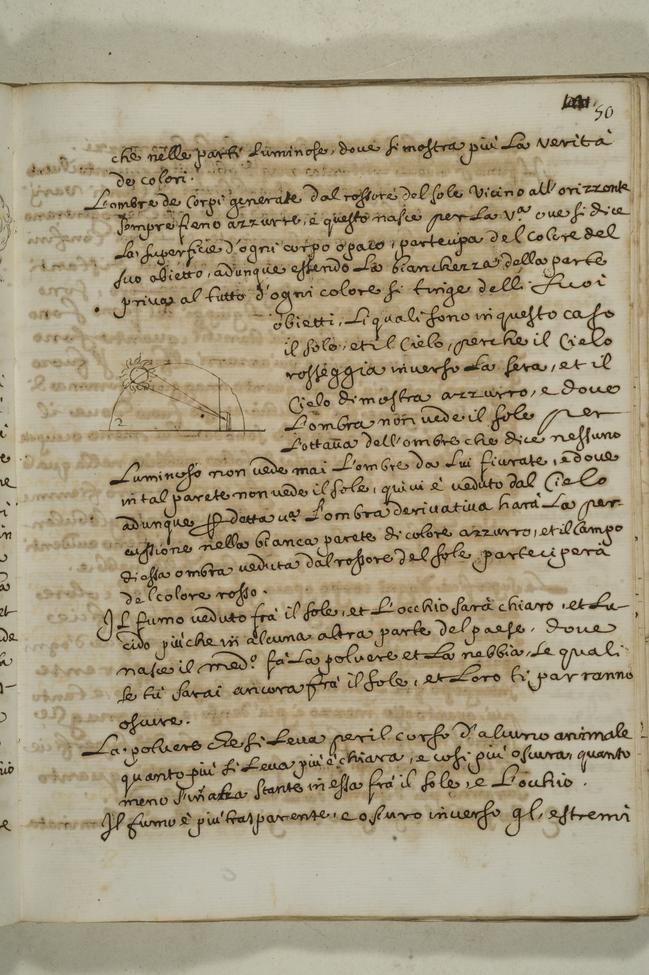 50
che nelle parti luminose, dove si mostra più la verità
de colori.
L'ombre de corpi generate dal rossore del sole vicino all'orizzonte
sempre fieno azzurre, e questo nasce per la v.ª ove si dice
la superficie d'ogni corpo opaco, partecipa del colore del
suo obietto, adunque essendo la bianchezza della parte
priva al tutto d'ogni colore si tinge delli suoi
obietti, li quali sono in questo caso
il sole, et il cielo, perche il cielo
rosseggia inverso la sera, et il
cielo dimostra azzurro, e dove
l'ombra non vede il sole per
l'ottava dell'ombre che dice nessuno
2
luminoso non vede mai l'ombre da lui fiurate, e dove
in tal parete non vede il sole, quivi è veduto dal cielo
adunque p detta va l'ombra derivativa harà la per-
cussione nella bianca parete di colore azzurro, et il campo
di essa ombra veduta dal rossore del sole parteciperà
del colore rosso.
Il fumo veduto frà il sole, et l'occhio sarà chiaro, et lu-
cido più che in alcuna altra parte del paese. dove
nasce il med.º fà la polvere et la nebbia, le quali
se tu sarai ancora frà il sole, et loro ti parranno
oscure.
La polvere che si leva per il corso d'alcuno animale
quanto più si leva più è chiara, e così più oscura, quanto
meno s'inalza stante in essa frà il sole, e l'occhio.
Il fumo è più trasparente, e oscuro inverso gl, estremi